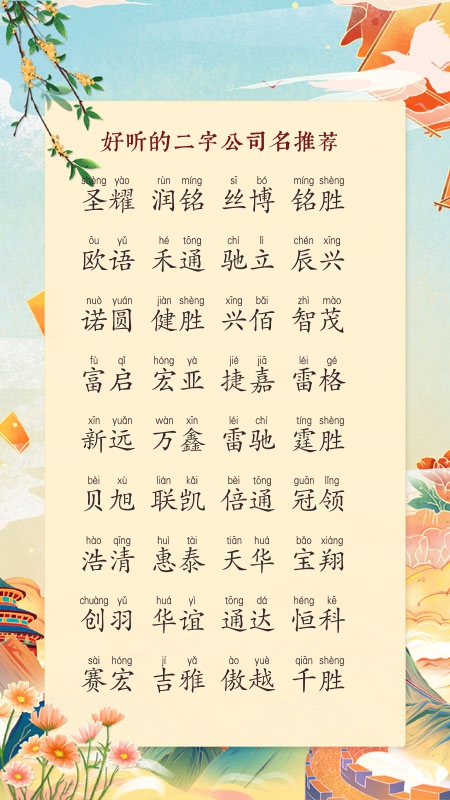 好听的二字公司名推荐
shèng yào rùn míng sī bó míng shèng
圣耀 润铭 丝博 铭胜
ōu yǔ hé tōng chí lì chén xīng
欧语 禾通 驰立 辰兴
nuò yuán jiàn shèng xīng bǎi zhì mào
诺圆 健胜 兴佰 智茂
fù qǐ hóng yà jié jiā léi gé
富启 宏亚 捷嘉 雷格
xīn yuǎn wàn xīn léi chí tíng shèng
新远 万鑫 雷驰 霆胜
bèi xù lián kǎi bèi tōng guān lǐng
贝旭 联凯 倍通 冠领
hào qīng huì tài tiān huá bǎo xiáng
浩清 惠泰 天华 宝翔
chuàng yǔ huá yì tōng dá héng kē
创羽 华谊 通达 恒科
sài hóng jí yǎ ào yuè qiān shèng
赛宏 吉雅 傲越 千胜